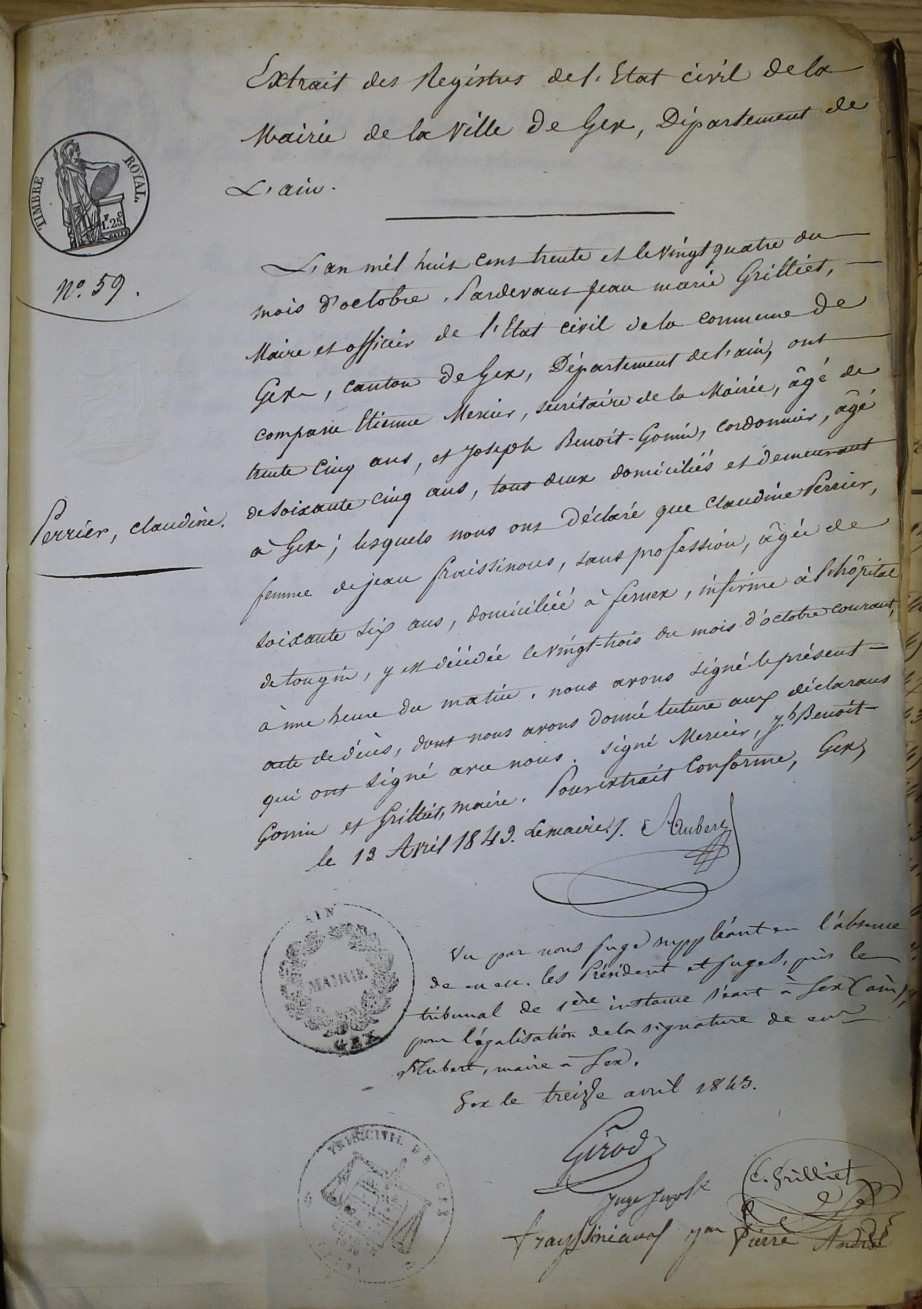 Extrait des Registres de l'Etat civil de la
Mairie de la Ville de Gex, Département de
L'ain.
TIMBRE ROYAL
F. C.
1.25
N.º 59.
L'an mil huit cent trente et le vingt quatre du
mois d'octobre, Pardevant Jean marie Grilliet,
Maire et officier de l'Etat civil de la commune de
Gex, canton de Gex, Département de l'ain, ont
comparu Etienne Mercier, secrétaire de la Mairie, âgé de
trente cinq ans, et Joseph Benoit-Gonin, cordonnier, âgé
de soixante cinq ans, tous deux domiciliés et demeurant
à Gex; lesquels nous ont déclaré que Claudine Perrier,
Perrier, claudine.
femme de jean fraissinous, sans profession, âgée de
soixante six ans, domiciliée à fernex, infirme à l'hôpital
de tougin, y est décédée le vingt-trois du mois d'octobre courant,
à une heure du matin. nous avons signé le présent
acte de décès, dont nous avons donné lecture aux déclarans
qui ont signé avec nous. signé Mercier, jh Benoit-
Gonin et Grilliet, maire. Pour extrait conforme, Gex,
le 13 Avril 1843. Le maire, Aubert
AIN
MAIRIE
GEX
Vu par nous juge suppléant en l'absence
de les Président et juges, près le
tribunal de 1ère instance séant à Gex (ain),
pour légalisation de la signature de mr
Aubert, maire à Gex.
Gex le treize avril 1843.
TRIB. CIVIL DE GEX
Girod
juge supt
C. Grilliet
Pierre André